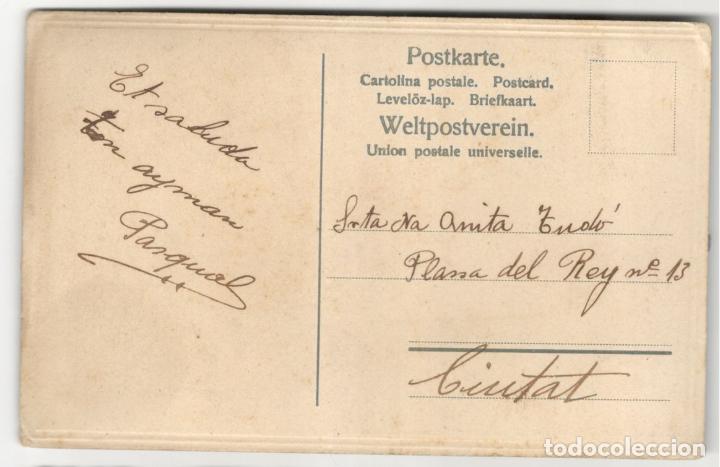 Postkarte.
Cartolina postale. Postcard.
Levelöz-lap. Briefkaart.
Weltpostverein.
Union postale universelle.
Et saluda
ton ayman
Pasqual
Srta Na Anita Tudó
Plassa del Rey nº 13
Ciutat
todocoleccion